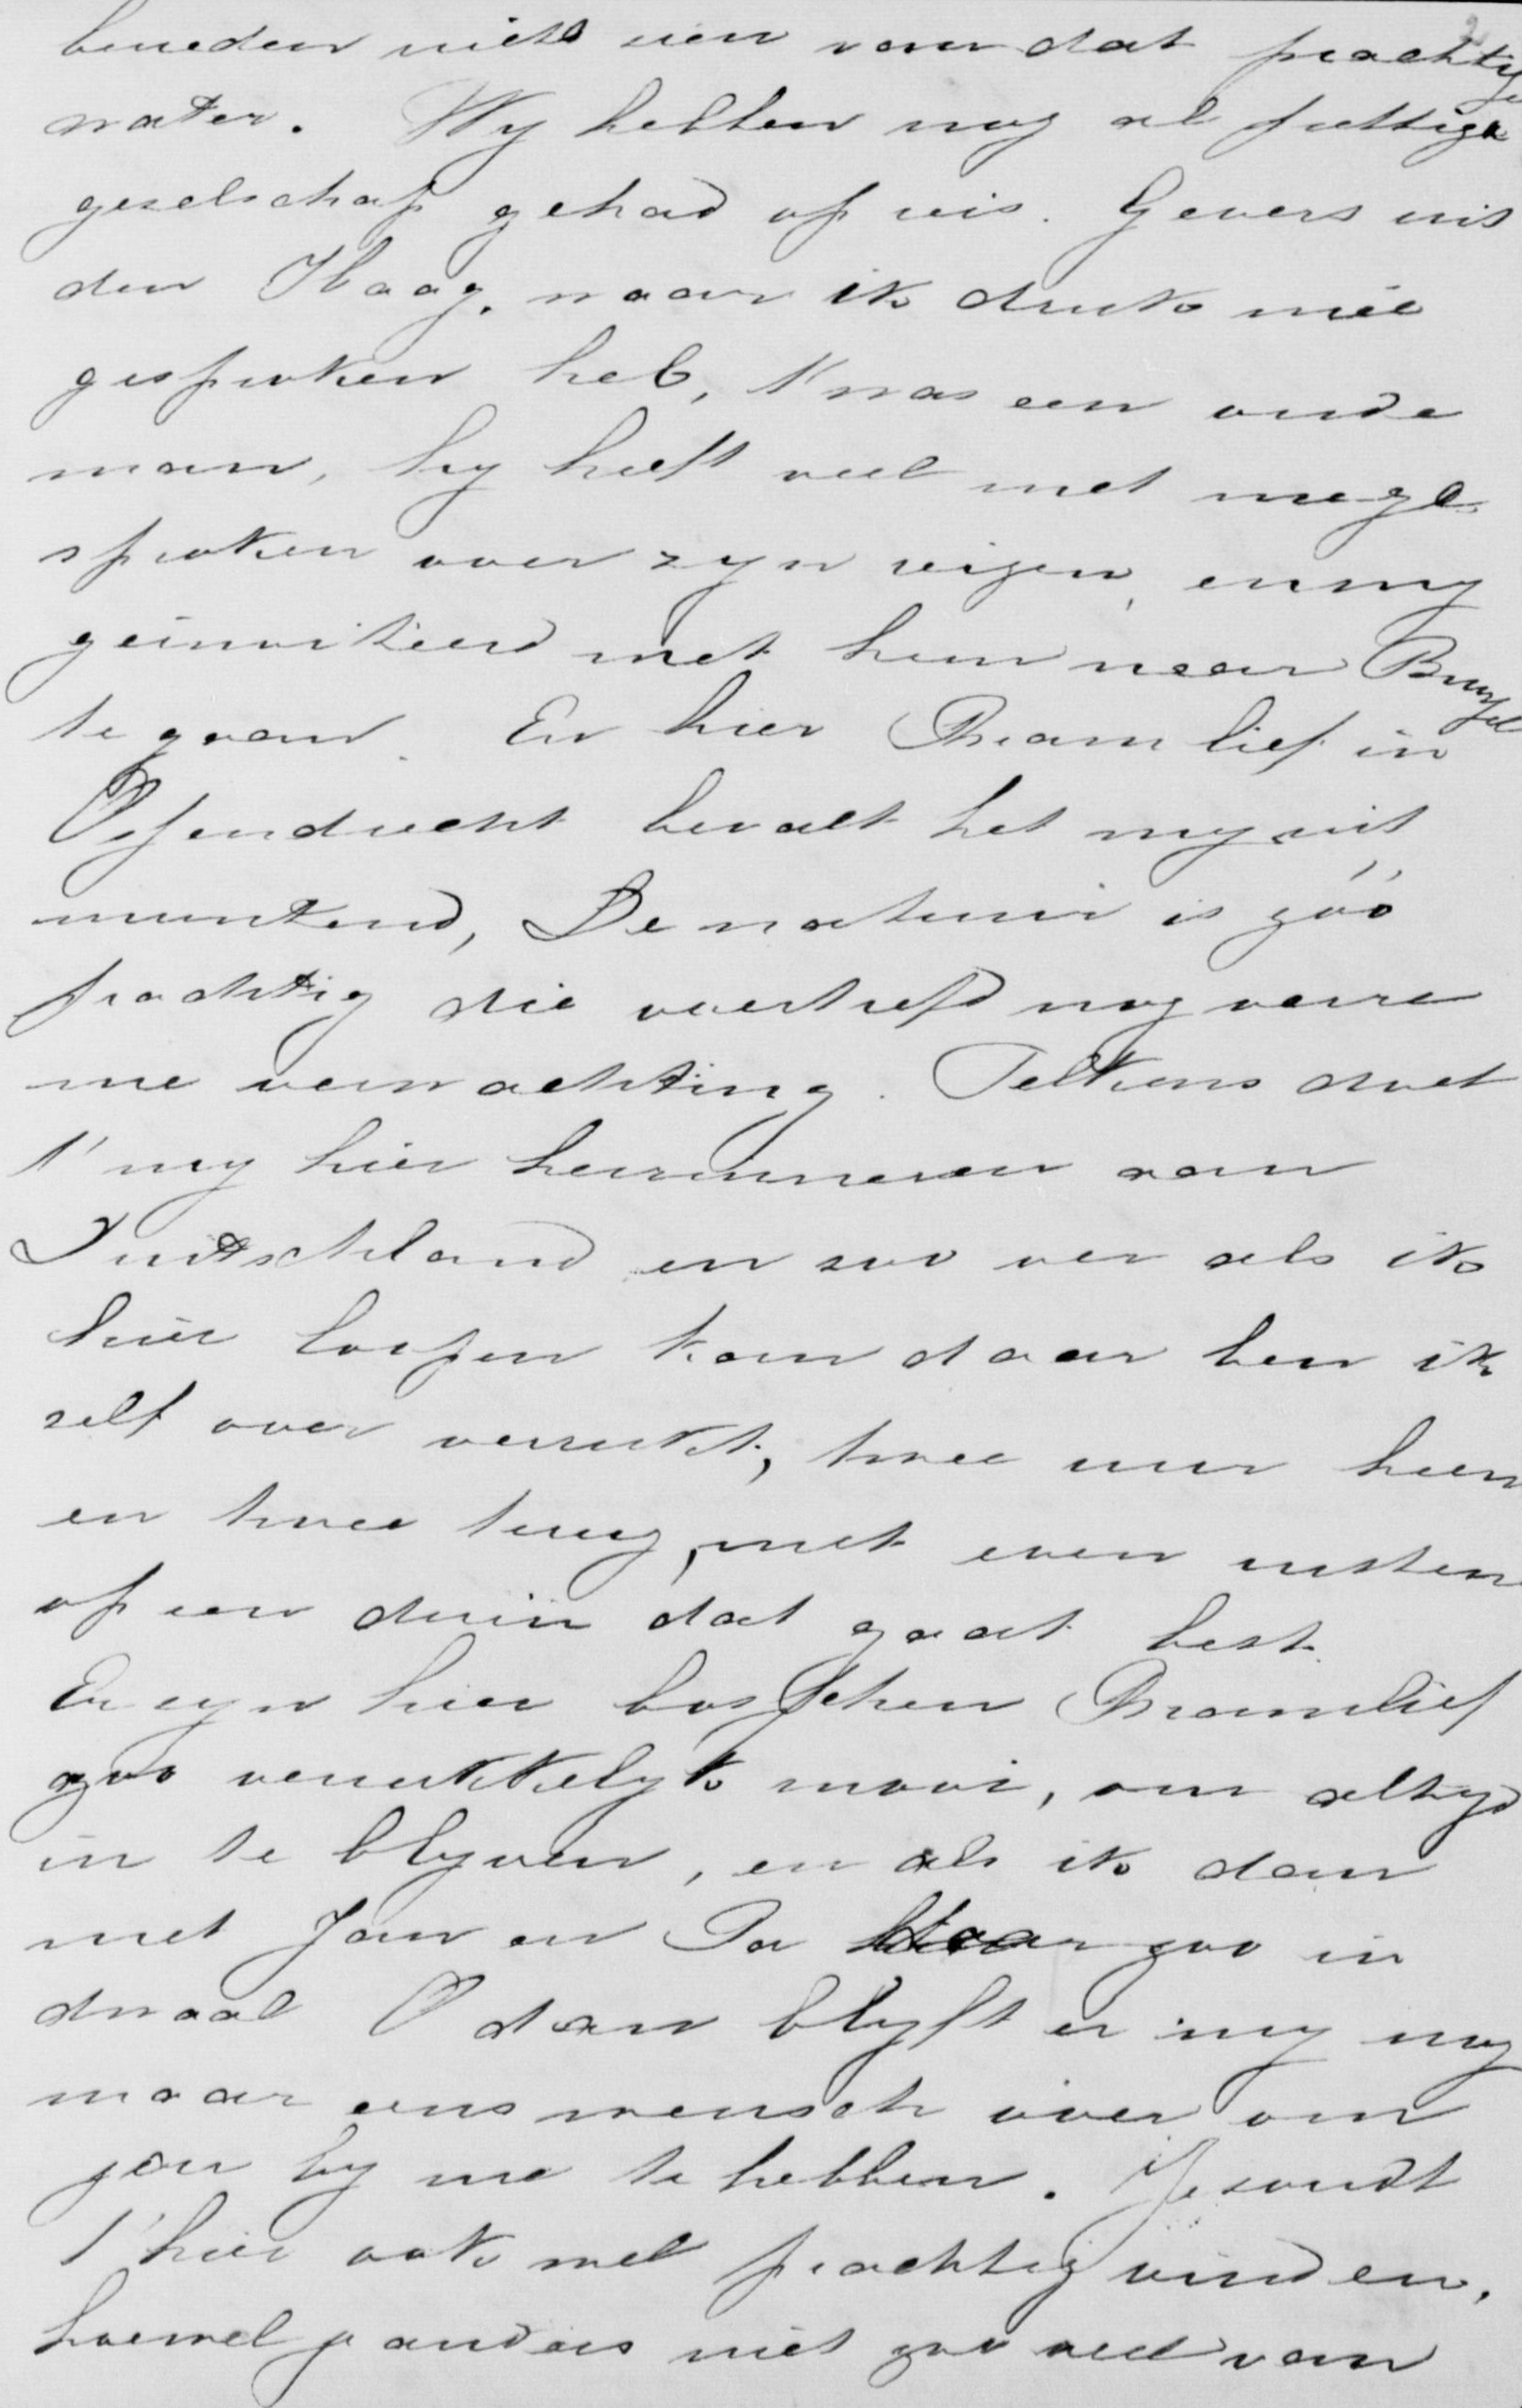 beneden niets zien van dat prachtige
water. Wy hebben nog al prettige
geselschap gehad op reis. Gevers uit
den Haag. waar ik druk mée
gesproken heb, t'was een oude
man, hy heeft veel met me ge
sproken over zyn reizen, en my
geinviteerd met hem naar Brussel
te gaan. En hier Bram lief in
Ossendrecht bevalt het my uit
muntend, De natuur is zóó
prachtig die overtrefd nog verre
me verwachting. Telkens doet
t' my hier herinneren aan
Duitschland en zoo ver als ik
hier loopen kan daar ben ik
self over verrukt, twee uur heen
en twee terug, met even rusten
op een duin dat gaat best.
Er zyn hier bosschen Bramlief
zoo verrukkelyk mooi, om altyd
in te blyven, en als ik dan
met Jan en Pa zoo in
dwaal O dan blyft er my nog
maar eens wensch over om
jou by me te hebben. Je soudt
t'hier ook wel prachtig vinden,
hoewel je anders niet zoo veel van